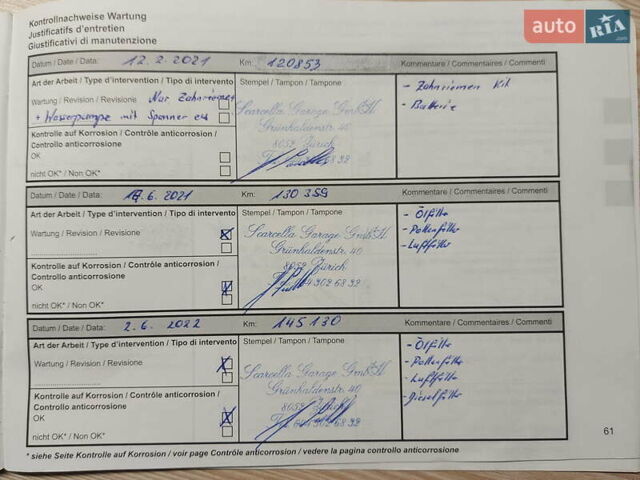 Kontrollnachweise Wartung
Justificatifs d'entretien
Giustificativi di manutenzione
auto RIA.com
Datum / Date / Data: 12.2.2021 Km: 120853 Kommentare / Commentaires / Commenti
Art der Arbeit / Type d'intervention / Tipo di intervento Stempel / Tampon / Tampone
Wartung / Revision / Revisione Nur Zahnriemen
+ Wasserpumpe mit Spanner
- Zahnriemen Kit
- Batterie
Kontrolle auf Korrosion / Contrôle anticorrosion /
Controllo anticorrosione
OK
nicht OK* / Non OK*
Scarcella Garage GmbH
Grünhaldenstr. 40
8052 Zürich
Datum / Date / Data: 17.6.2021 Km: 130359 Kommentare / Commentaires / Commenti
Art der Arbeit / Type d'intervention / Tipo di intervento Stempel / Tampon / Tampone
Wartung / Revision / Revisione
- Ölfilter
- Pollenfilter
- Luftfilter
Kontrolle auf Korrosion / Contrôle anticorrosion /
Controllo anticorrosione
OK
nicht OK* / Non OK*
Scarcella Garage GmbH
Grünhaldenstr. 40
8052 Zürich
Datum / Date / Data: 2.6.2022 Km: 145130 Kommentare / Commentaires / Commenti
Art der Arbeit / Type d'intervention / Tipo di intervento Stempel / Tampon / Tampone
Wartung / Revision / Revisione
- Ölfilter
- Pollenfilter
- Luftfilter
- Dieselfilter
Kontrolle auf Korrosion / Contrôle anticorrosion /
Controllo anticorrosione
OK
nicht OK* / Non OK*
Scarcella Garage GmbH
Grünhaldenstr. 40
8052 Zürich
61
* siehe Seite Kontrolle auf Korrosion / voir page Contrôle anticorrosion / vedere la pagina controllo anticorrosione